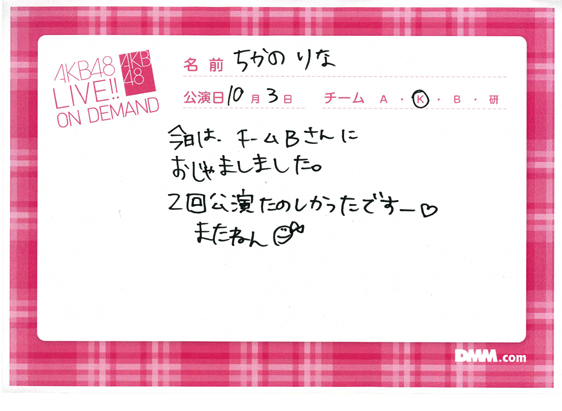 AKB48
LIVE!!
ON DEMAND
AKB
48
名前 ちかの りな
公演日 10月3日 チーム A・K・B・研
今日は、チームBさんに
おじゃましました。
2回公演たのしかったですー♡
またねん
DMM.com